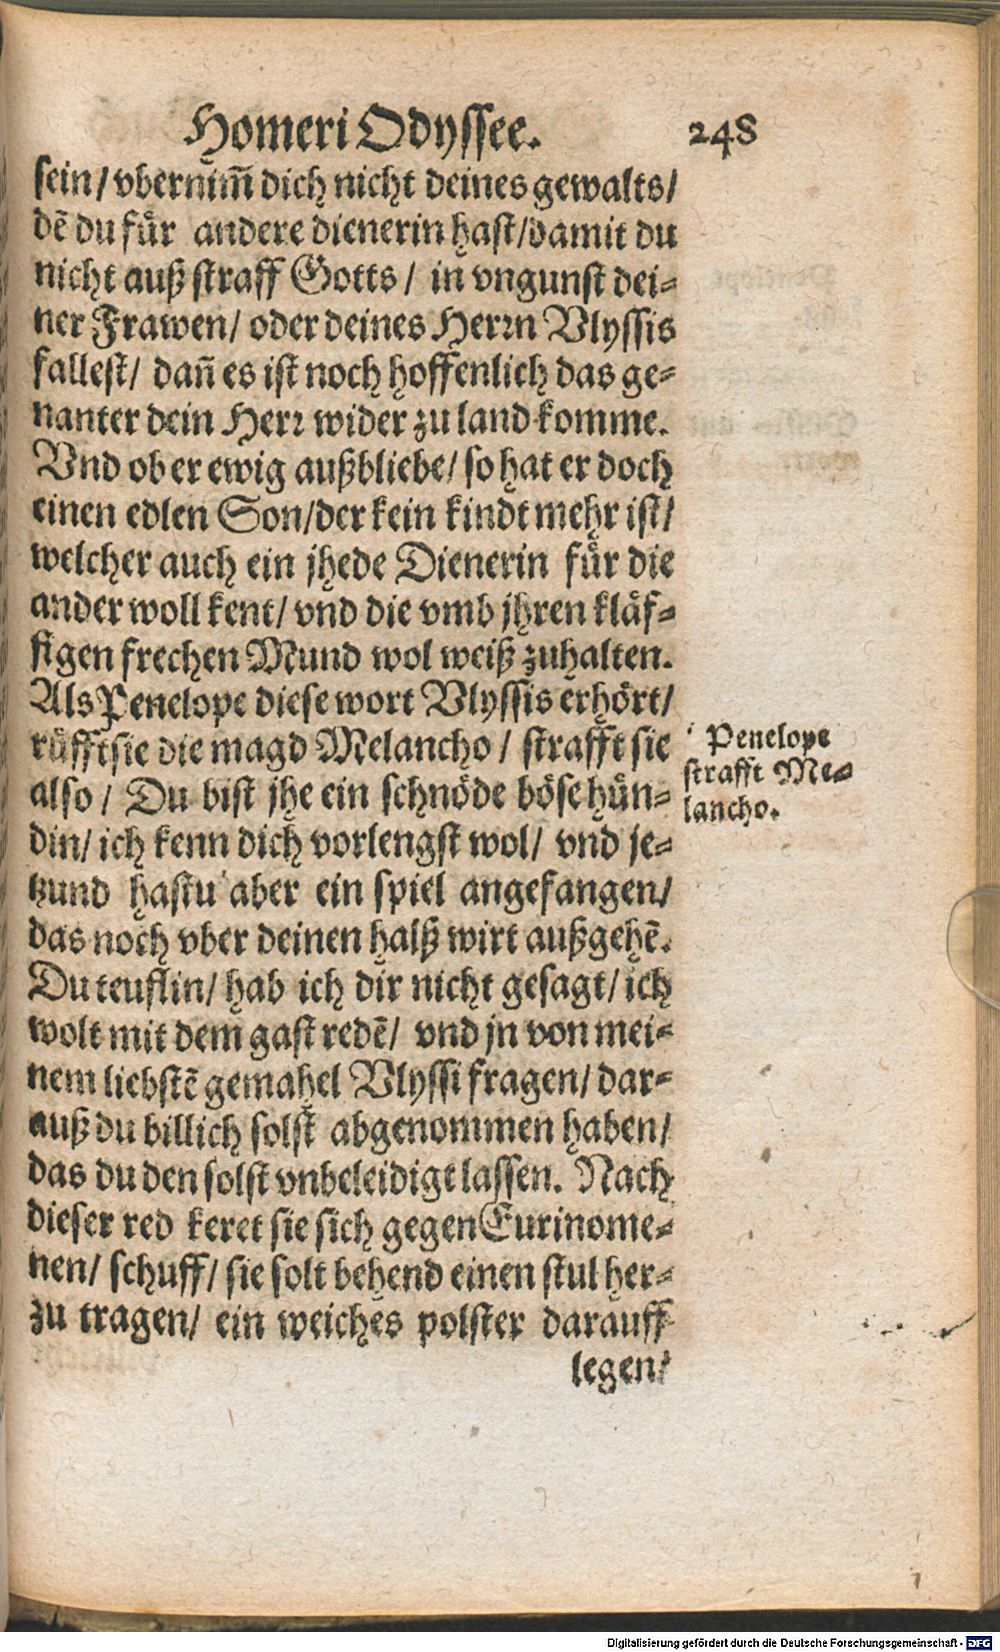 Homeri Odyssee. 248
sein/ vbernim̃ dich nicht deines gewalts/
dẽ du für andere dienerin hast/damit du
nicht auß straff Gotts/ in vngunst dei-
ner Frawen/ oder deines Herrn Vlyssis
fallest/ dañ es ist noch hoffenlich das ge-
nanter dein Herr wider zu land komme.
Vnd ob er ewig außbliebe/ so hat er doch
einen edlen Son/der kein kindt mehr ist/
welcher auch ein jhede Dienerin für die
ander woll kent/ vnd die vmb jhren kläf-
figen frechen Mund wol weiß zuhalten.
Als Penelope diese wort Vlyssis erhört/
rüfft sie die magd Melancho/ strafft sie
also/ Du bist jhe ein schnöde böse hün-
din/ ich kenn dich vorlengst wol/ vnd je-
tzund hastu aber ein spiel angefangen/
das noch vber deinen halß wirt außgehẽ.
Du teuflin/ hab ich dir nicht gesagt/ ich
wolt mit dem gast redẽ/ vnd jn von mei-
nem liebstẽ gemahel Vlyssi fragen/ dar-
auß du billich solst abgenommen haben/
das du den solst vnbeleidigt lassen. Nach
dieser red keret sie sich gegen Eurinome-
nen/ schuff/ sie solt behend einen stul her-
zu tragen/ ein weiches polster darauff
legen/
Penelope
strafft Me-
lancho.
Digitalisierung gefördert durch die Deutsche Forschungsgemeinschaft - DFG